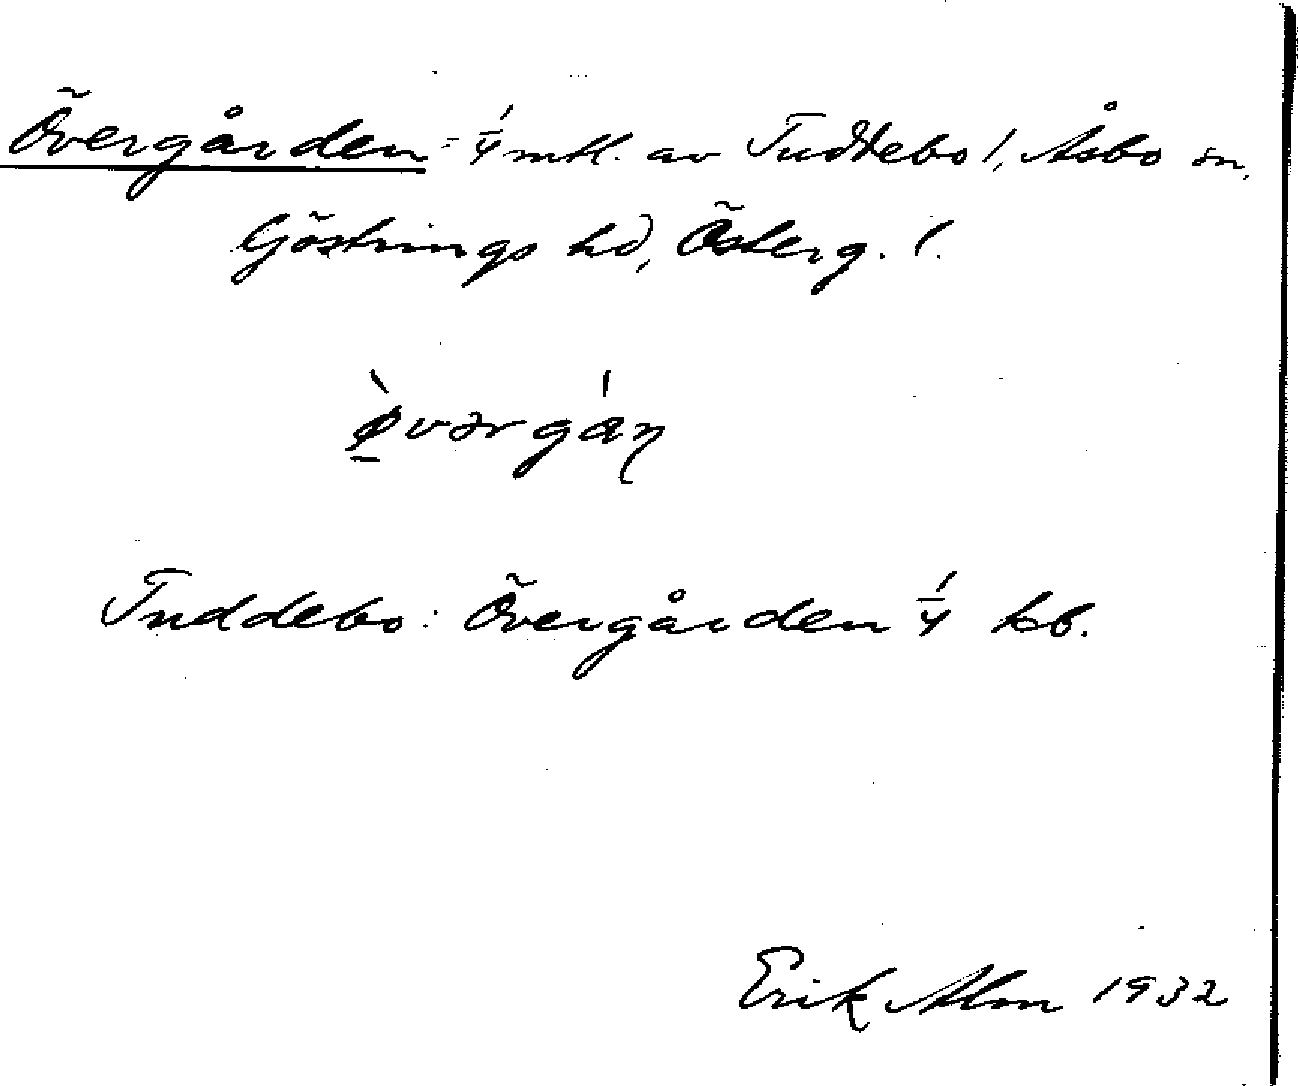 Övergården = 1/4 mtl. av Tuddebo l., Åsbo sn,
Göstrings hd, Österg. l.
Tuddebo: Övergården 1/4 kb.
Erik Alm 1932